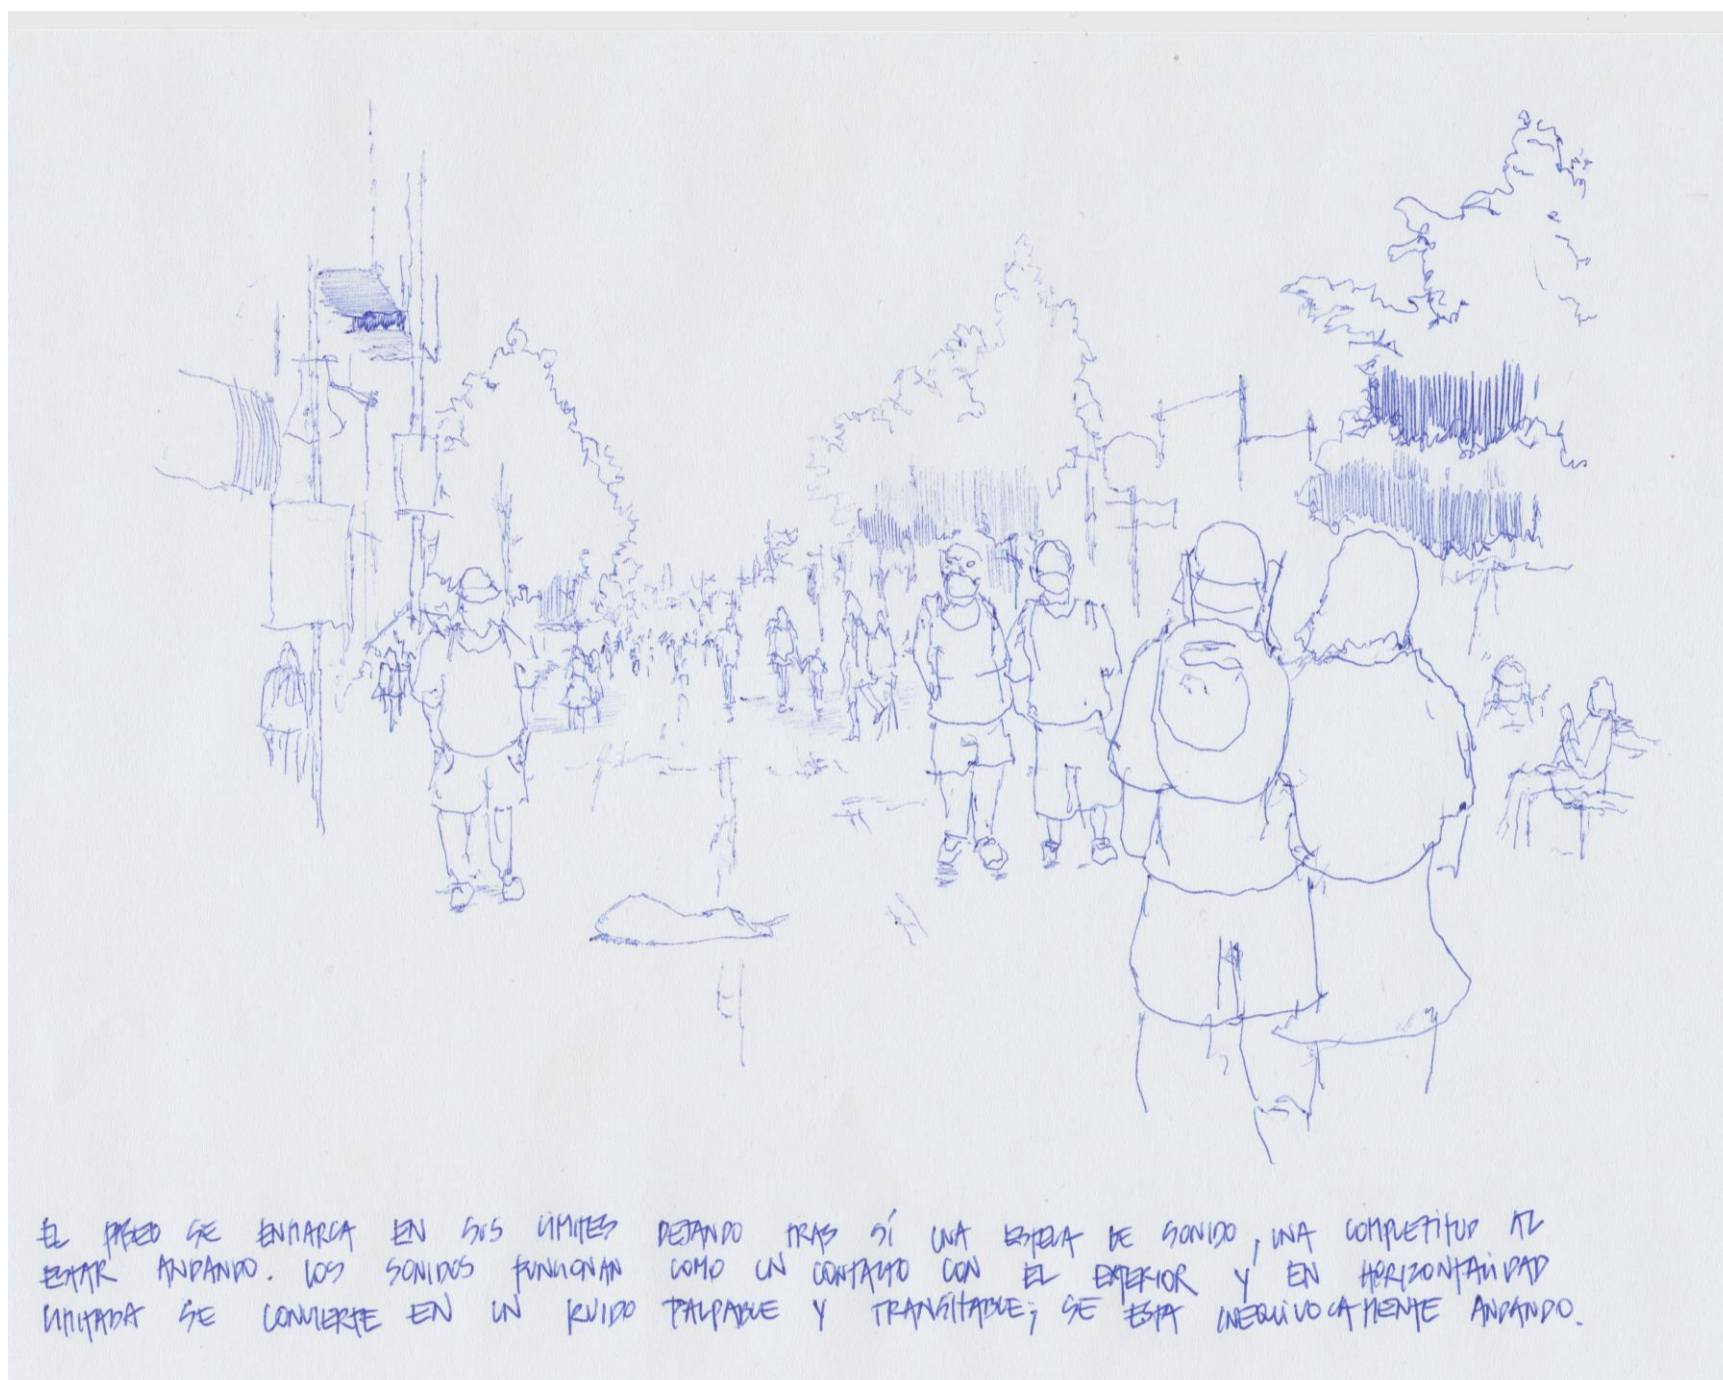 EL PASEO SE ENMARCA EN SUS LÍMITES DEJANDO TRAS SÍ UNA ESTELA DE SONIDO, UNA COMPLETITUD AL
ESTAR ANDANDO. LOS SONIDOS FUNCIONAN COMO UN CONTACTO CON EL EXTERIOR Y EN HORIZONTALIDAD
LIMITADA SE CONVIERTE EN UN RUIDO PALPABLE Y TRANSITABLE; SE ESTA INEQUIVOCAMENTE ANDANDO.